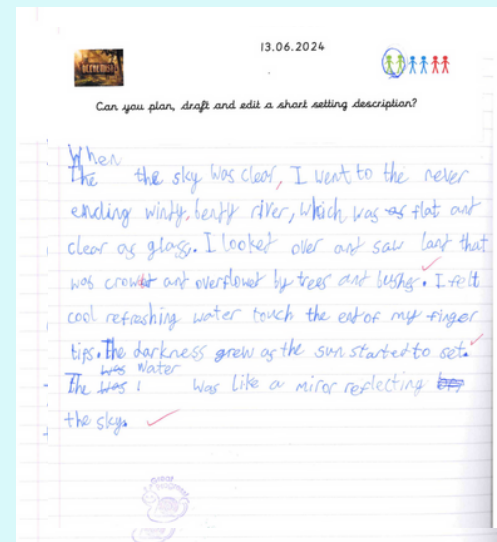 13.06.2024
Can you plan, draft and edit a short setting description?
When
The the sky was clear, I went to the never
ending windy, bendy river, which was as flat and
clear as glass. I looked over and saw land that
was crowded and overflowed by trees and bushes. I felt
cool refreshing water touch the end of my finger
tips. The darkness grew as the sun started to set.
was water
The was was like a miror reflecting
the sky.